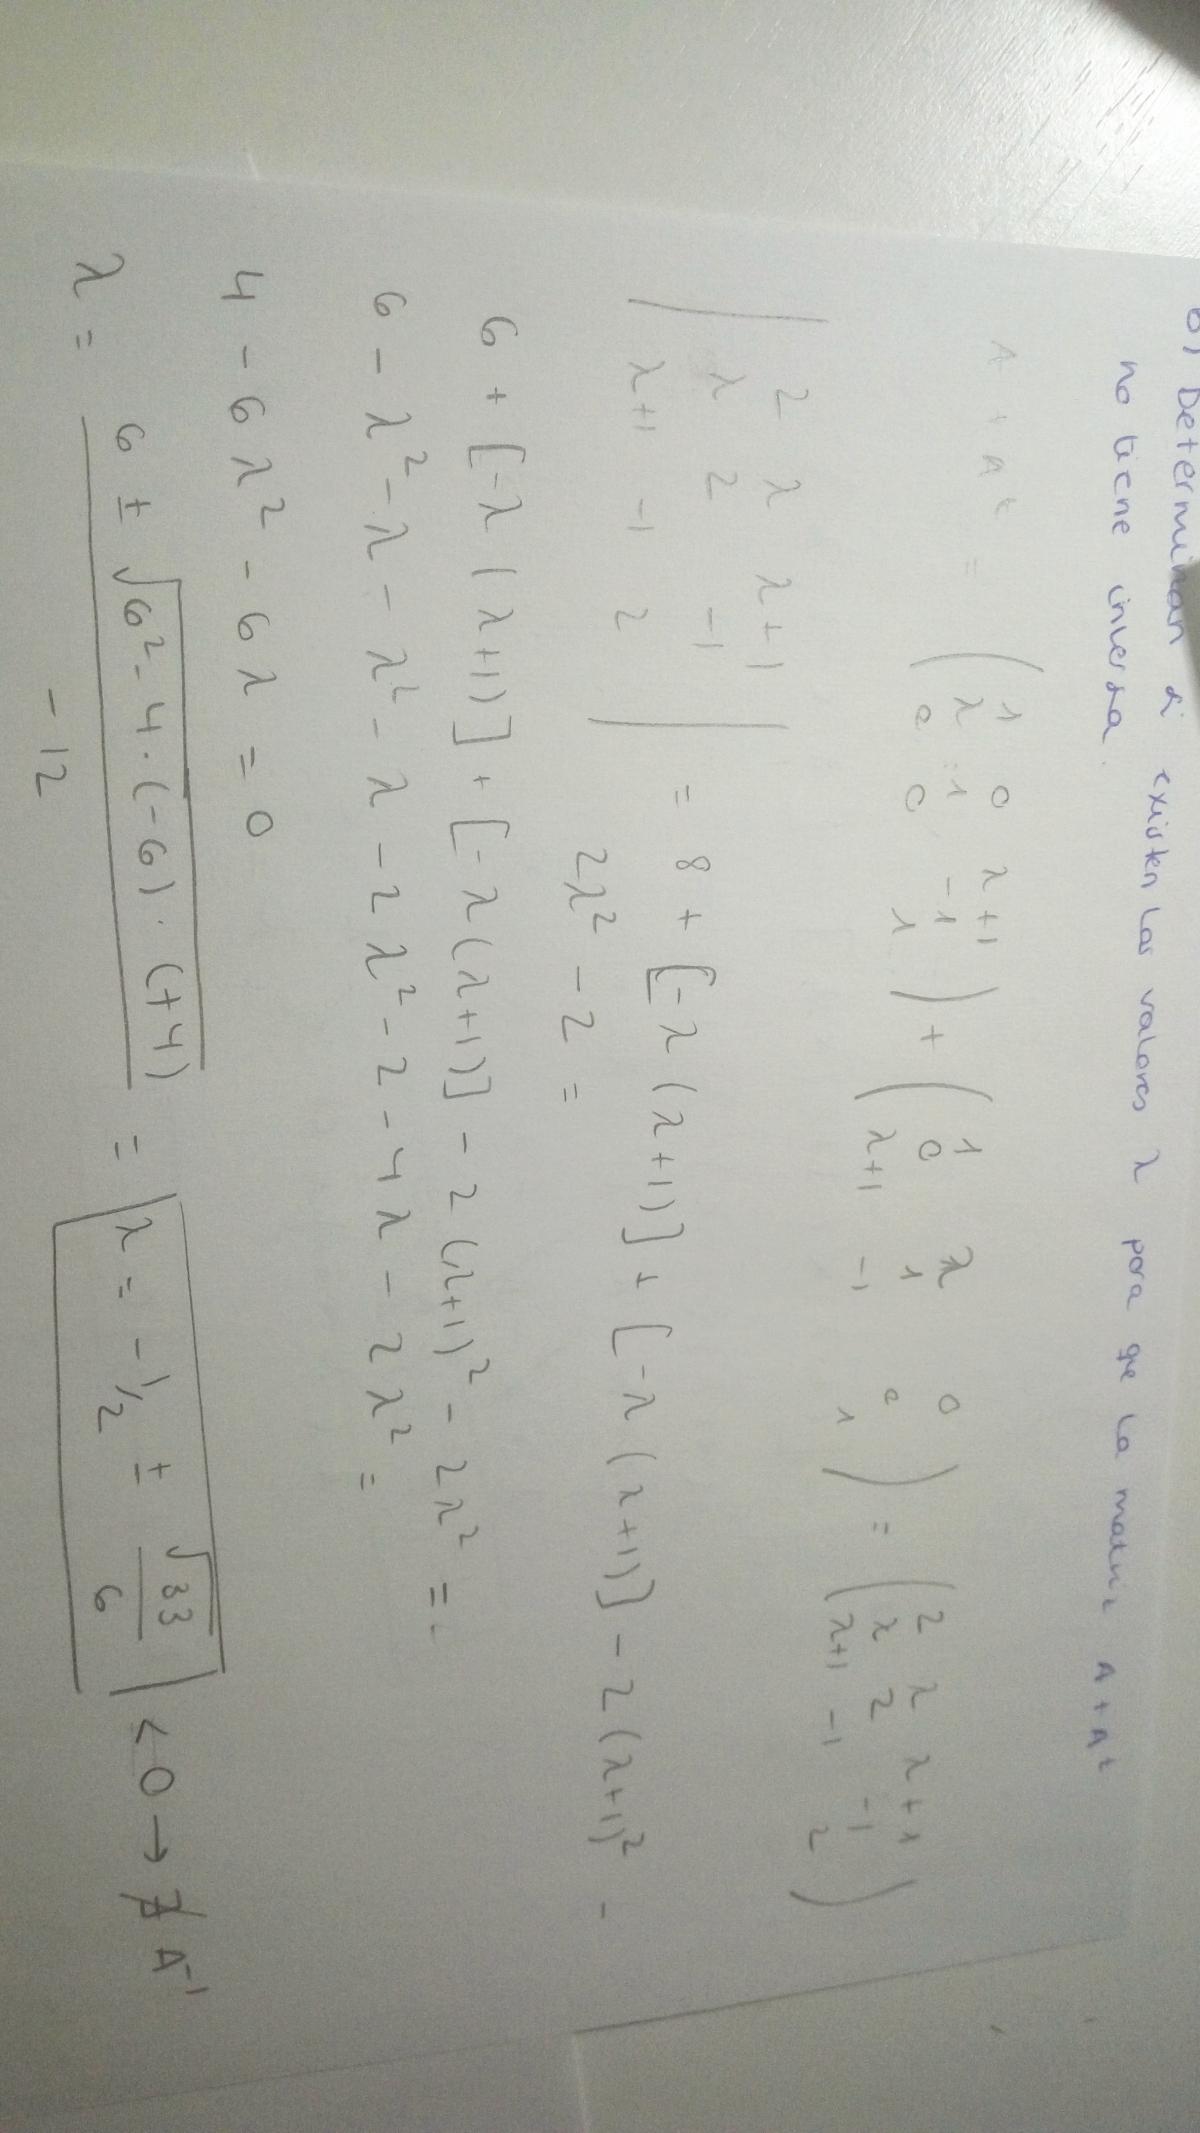 b) Determinan si existen los valores λ para qe la matriz A + Aᵗ
no tiene inversa.
A + Aᵗ = ( 1 0 λ+1 ) + ( 1 λ 0 ) = ( 2 λ λ+1 )
( λ 1 -1 ) ( 0 1 0 ) ( λ 2 -1 )
( 0 0 1 ) ( λ+1 -1 1 ) ( λ+1 -1 2 )
| 2 λ λ+1 |
| λ 2 -1 | = 8 + [-λ (λ+1)] + [-λ (λ+1)] - 2(λ+1)² -
| λ+1 -1 2 | 2λ² - 2 =
6 + [-λ (λ+1)] + [-λ(λ+1)] - 2(λ+1)² - 2λ² =
6 - λ² - λ - λ² - λ - 2λ² - 2 - 4λ - 2λ² =
4 - 6λ² - 6λ = 0
λ = 6 ± √6² - 4·(-6)·(+4) / -12 = λ = -1/2 ± √33 / 6 < 0 → ∄ A⁻¹